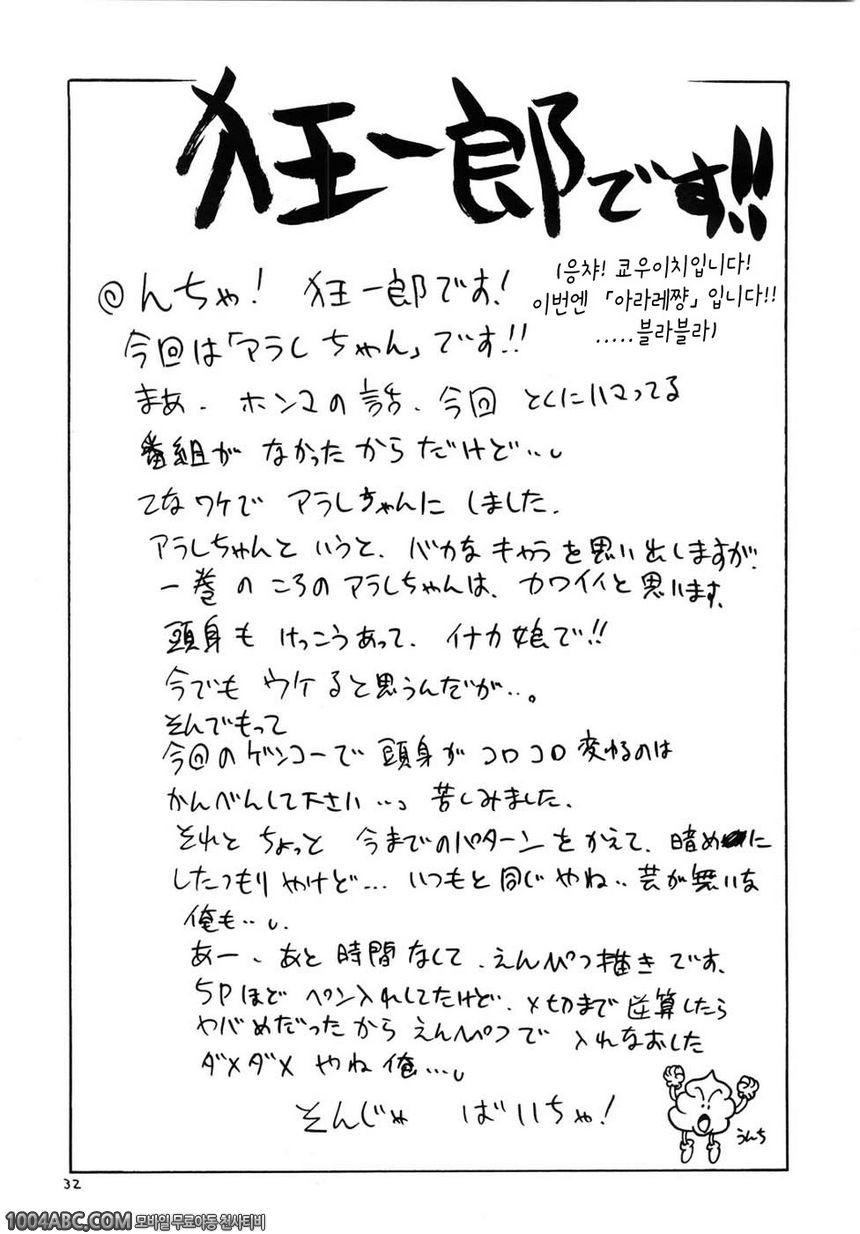 狂一郎です!!
@んちゃ! 狂一郎です!
今回は「アラレちゃん」です!!
(응챠! 쿄우이치입니다!
이번엔 「아라레쨩」입니다!!
.....블라블라)
まあ、ホンマの話、今回とくにハマってる
番組がなかったからだけど…
てなワケでアラレちゃんにしました。
アラレちゃんというと、バカなキャラを思い出しますが、
一巻のころのアラレちゃんは、カワイイと思います。
頭身もけっこうあって、イナカ娘で!!
今でもウケると思うんだが…。
そんでもって
今回のゲンコーで頭身がコロコロ変わるのは
かんべんして下さい…苦しみました。
それとちょっと今までのパターンをかえて、暗めに
したつもりやけど…いつもと同じやね…芸が無いな
俺も…
あー、あと時間なくて、えんぴつ描きです。
5Pほどペン入れしてたけど、〆切まで逆算したら
ヤバめだったからえんぴつで入れなおした
ダメダメやね俺…
そんじゃ ばいちゃ!
うんち
32
1004ABC.COM 모바일 무료야동 천사티비